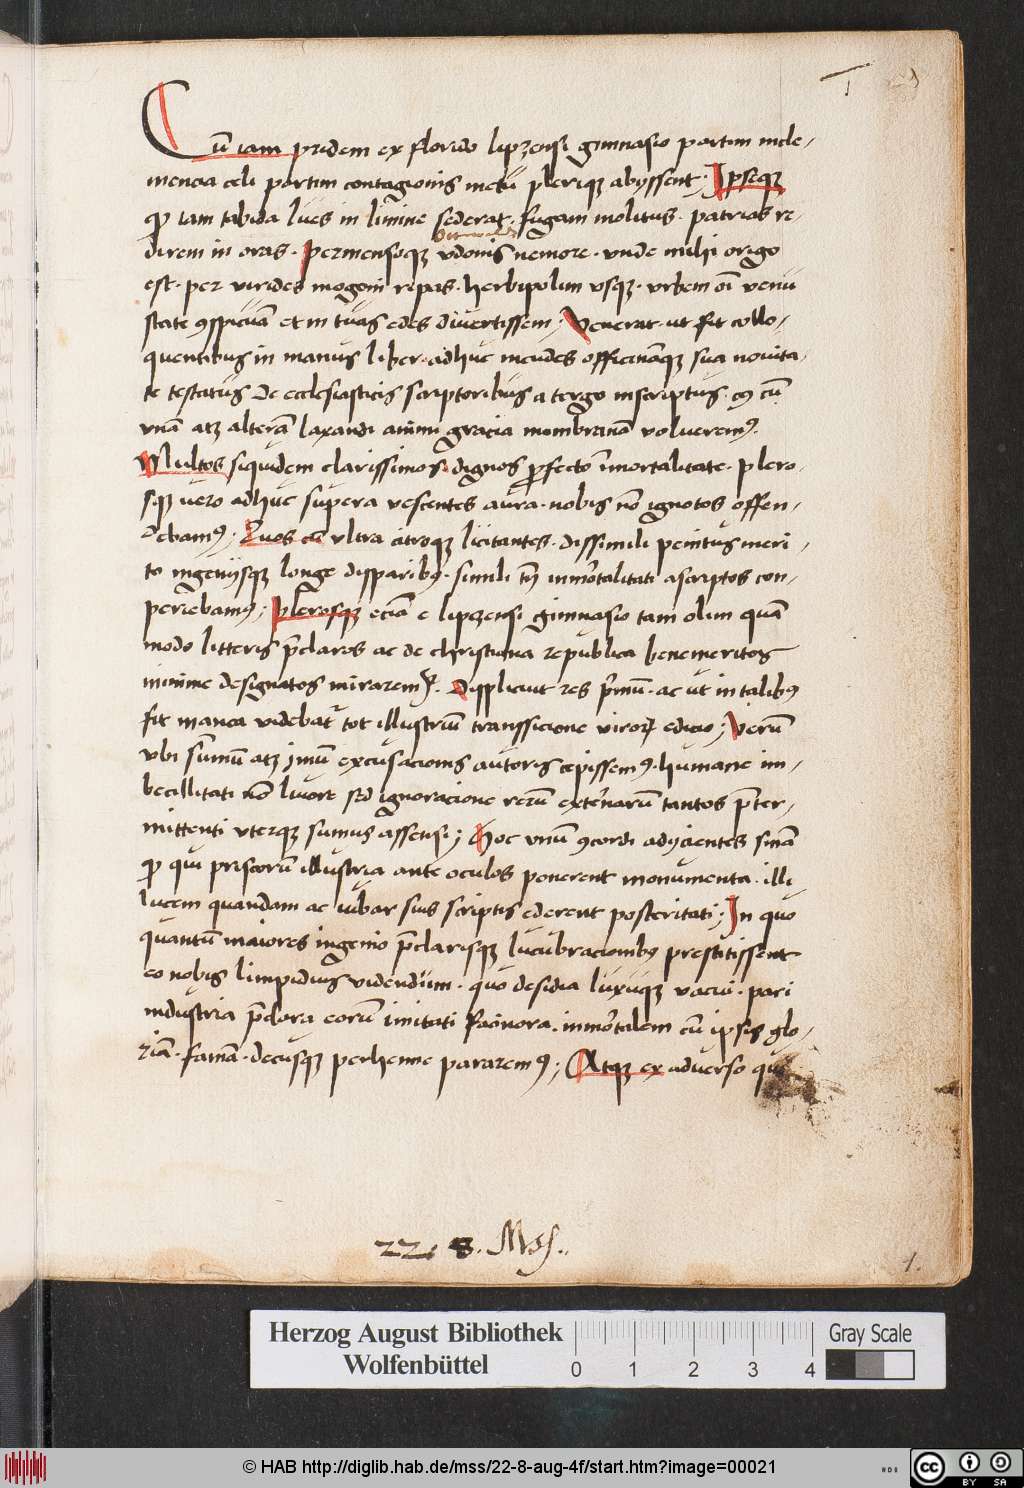 I
Cū iam pridem ex florido lipzensi gimnasio partim incle-
mencia celi partim contagionis metū pleriqꝫ abyssent. Ipseqꝫ
iam tabida lues in limine sederat. fugam molitus. patrias re-
direm in oras. Permensoqꝫ vdonis nemore. vnde mihi origo
est. per virides mogoni ripas. herbipolim vsqꝫ. vrbem oī venu
state ꝯspicuā et in tuas edes divertissem; Venerat. ut fit collo-
quentibus in manus liber. adhuc incudes officināqꝫ sua novita-
te testatus De ecclesiasticis scriptoribus a tergo inscriptus. cū
vnā atꝫ alterā laxandi animi gracia membranā volveremꝰ.
Multos siquidem clarissimos dignos ꝓfecto īmortalitate. plero-
sqꝫ vero adhuc supera vescentes aura. nobis nō ignotos offen-
debamꝰ; Quos cū vltra citroqꝫ licitantes. dissimili penitus meri-
to ingenijsqꝫ longe disparibꝰ. simili tn̄ inmortalitati ascriptos con-
periebamꝰ; Plerosqꝫ eciā e lipczensi gimnasio tam olim quā
modo litteris p̄claros ac de christiana republica benemeritos
minime designatos miraremur. Displicuit res p̄mū. ac ut in talibꝰ
fit manca videbat̄ tot illustriū transsicione viroꝝ edicio; Verū
vbi sūmū atꝫ imū excusacionis autoris cepissemꝰ. humane im-
becillitati nō livore sed ignoracione rerū externarū tantos p̄ter-
mittenti vterqꝫ sumus assensi; Hoc vnū ꝯcordi adijcientes sn̄iā
ꝙ qui priscorū illustria ante oculos ponerent monumenta. illi
lucem quandam ac iubar suis scriptis ederent posteritati; In quo
quantū maiores ingenio p̄clarisqꝫ lucubracionibꝰ prestitissent
eo nobis limpidius videndum. quo desidia luxuqꝫ vacui. pari
industria p̄clara eorū imitati facinora. inmortalem cū ipsis glo-
riā. famā. decusqꝫ perhenne pararemꝰ; Atqꝫ ex adverso qui
22. 8. Mss.
1.
Herzog August Bibliothek
Wolfenbüttel
0 1 2 3 4
Gray Scale
© HAB http://diglib.hab.de/mss/22-8-aug-4f/start.htm?image=00021
cc BY SA